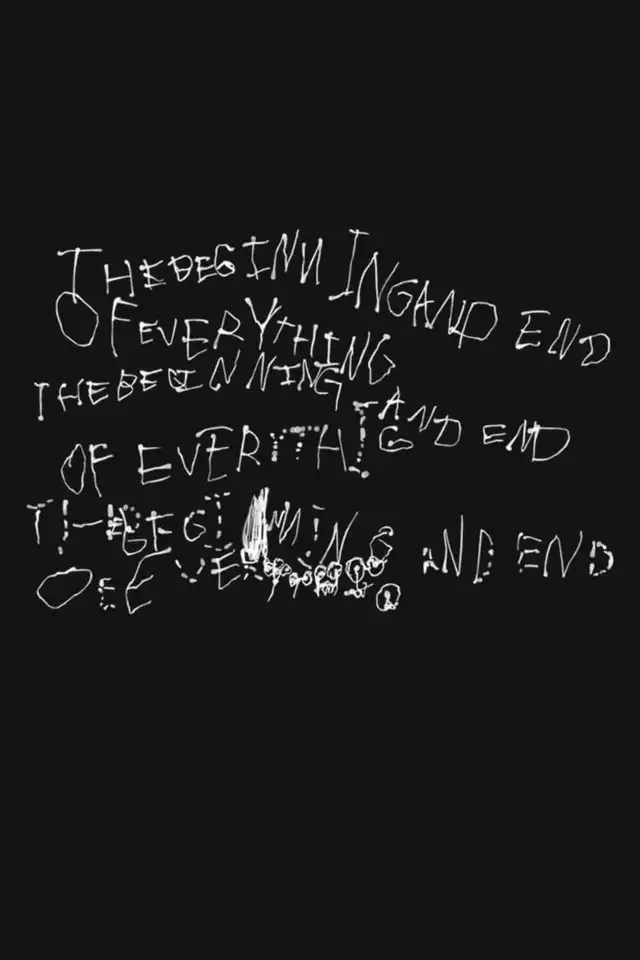 THE BEGINN ING AND END
OF EVERYTHING
THE BEGINNING AND END
OF EVERITHIG
THE BEGI NNING AND END
OF EVE